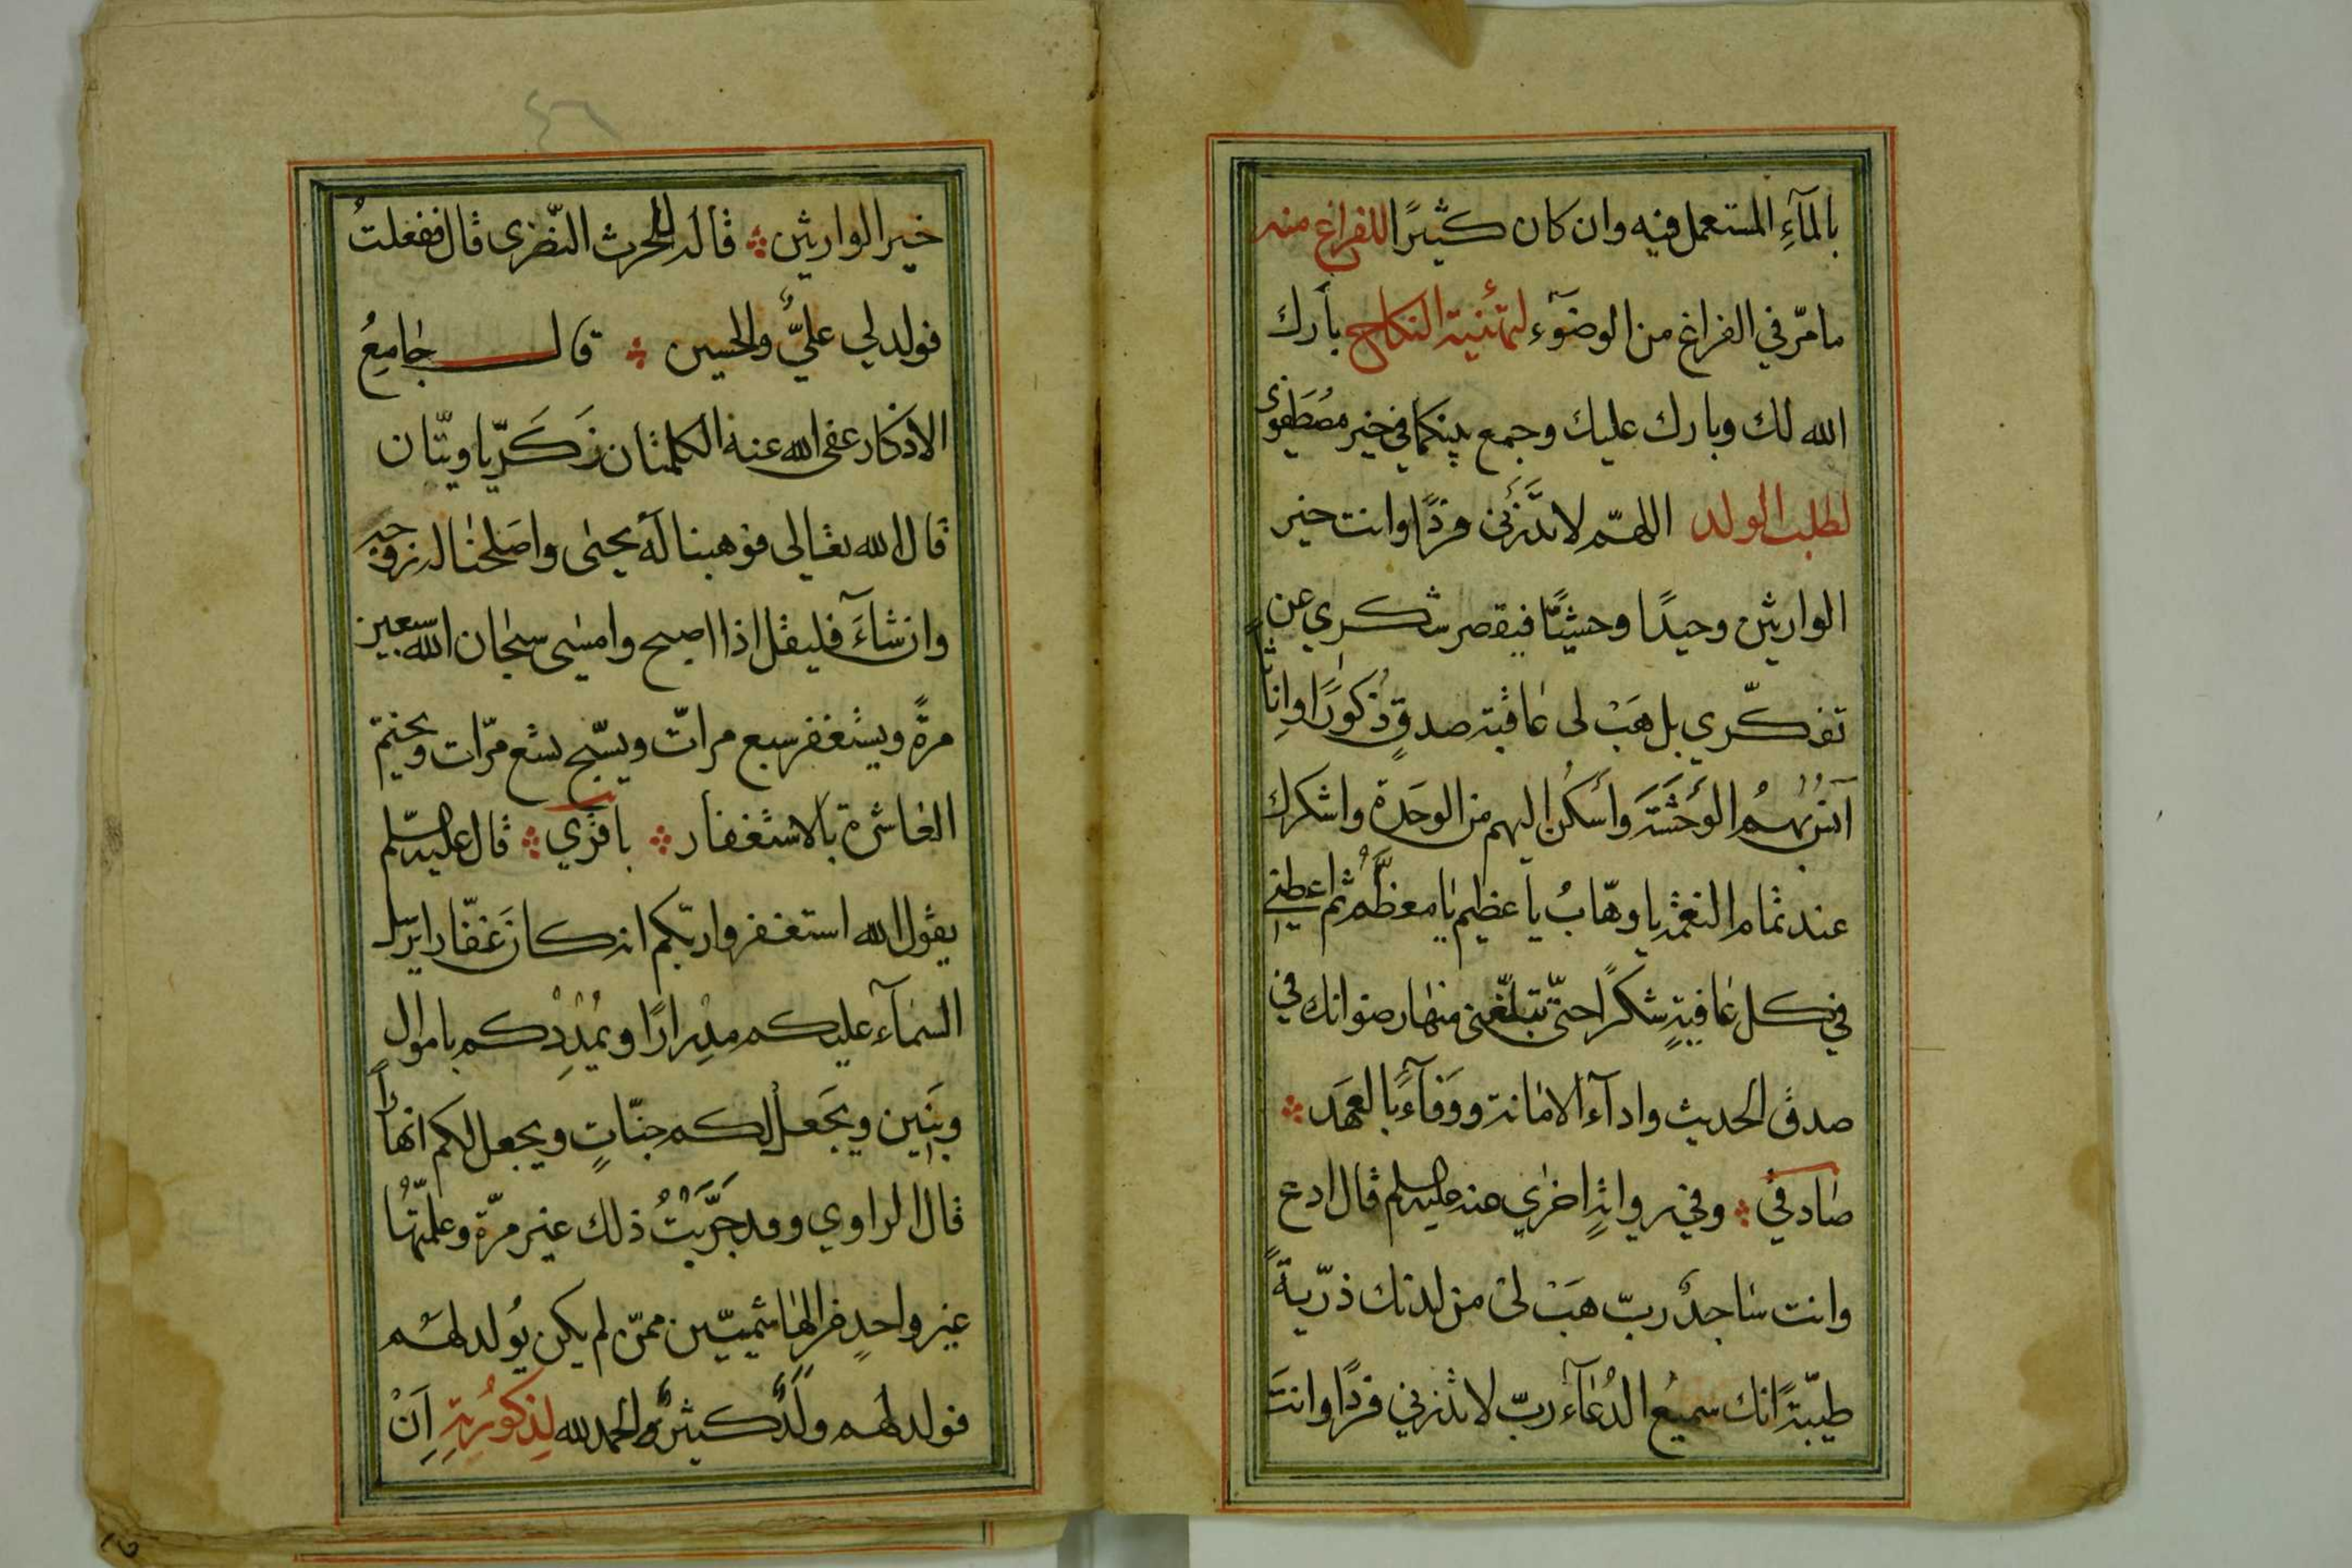 بالمآءِ المستعمل فيه وان كان كثيرًا للفراغ منه
مامرّ في الفراغ من الوضوء لتهنئية النكاح بارك
الله لك وبارك عليك وجمع بينكما في خير مصطفوى
لطلب الولد اللهمّ لا تذرنى فردًا وانت خير
الوارثين وحيدًا وحشيًّا فيقصر شكري عن
تفكّري بل هَبْ لى عاقبة صدقٍ ذكورًا واناثًا
آنس بهم الوَحْشَةَ وأسكُنُ اليهم من الوحَدة واشكرك
عند تمام النعمة يا وهّابُ يا عظيم يا معظّم ثم اعطنى
في كل عافيةٍ شكرًا حتّى تبلّغنى منها رضوانك في
صدق الحديث وادآء الامانة ووفآءً بالعهَد
صادقي وفي رواية اخرى عنه عليه السلم قال ادع
وانت ساجدٌ ربّ هَبْ لى من لدنك ذرّيةً
طيّبةً انك سميعُ الدُعآء ربّ لا تذرني فردًا وانتَ
٤٦
خير الوارثين قاله للحرث النّضرى قال ففعلتُ
فولد لي عليٌّ والحسين قال جامعُ
الاذكار عفى الله عنه الكلمتان زَكَريّا ويتّان
قال الله تعالى فوهبنا له يحيى واصلحنا له زوجه
وان شآءَ فليقل اذا اصبح وامسى سبحان الله سبعين
مرةً ويستغفر سبع مراتّ ويسبّح تسع مرّات ويختم
العاشرة بالاستغفار باقري قال عليه السلم
يقول الله استغفروا ربّكم انه كان غفّارا يرسل
السمآء عليكم مدْرارًا ويُمْدِدْكم باموال
وبَنين ويجَعلْ لكم جنّاتٍ ويجعل لكم انهاراً
قال الراوي وقد جَرَّبْتُ ذلك غير مرّة وعلّمتُها
غير واحدٍ من الهاشميّين ممّن لم يكن يُولد لهم
فولد لهم ولَدٌ كثيرٌ والحمد لله لِذكورُيتهِ اَنْ